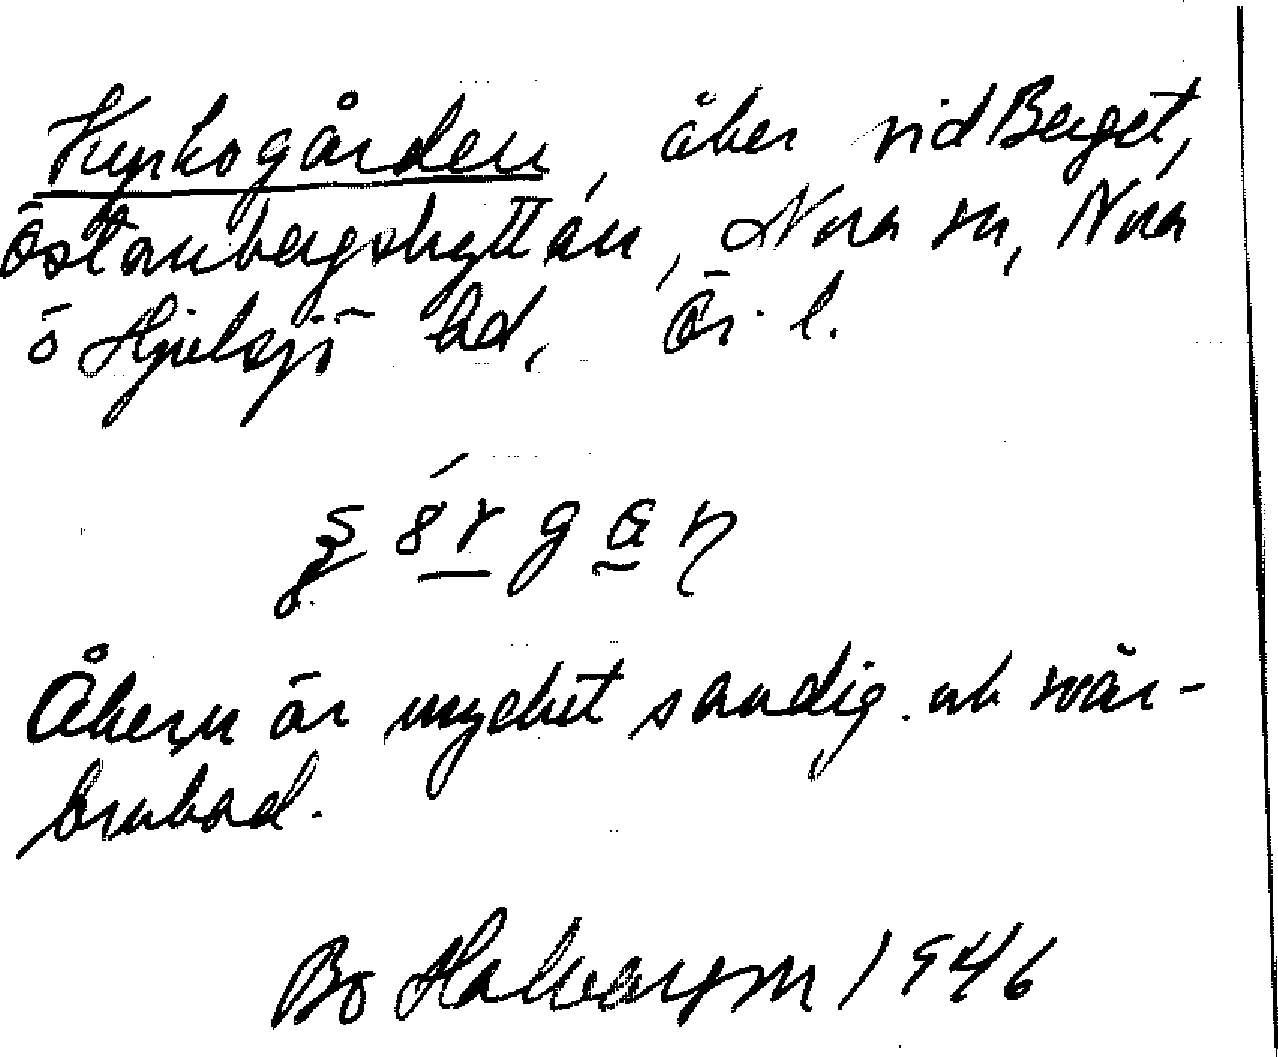 Kyrkogården, åker vid Berget,
Östanbergshyttan, Nora sn, Nora
o Hjulsjö bd, Ör. l.
Åkern är mycket sandig. och svår-
brukad.
Bo 1946